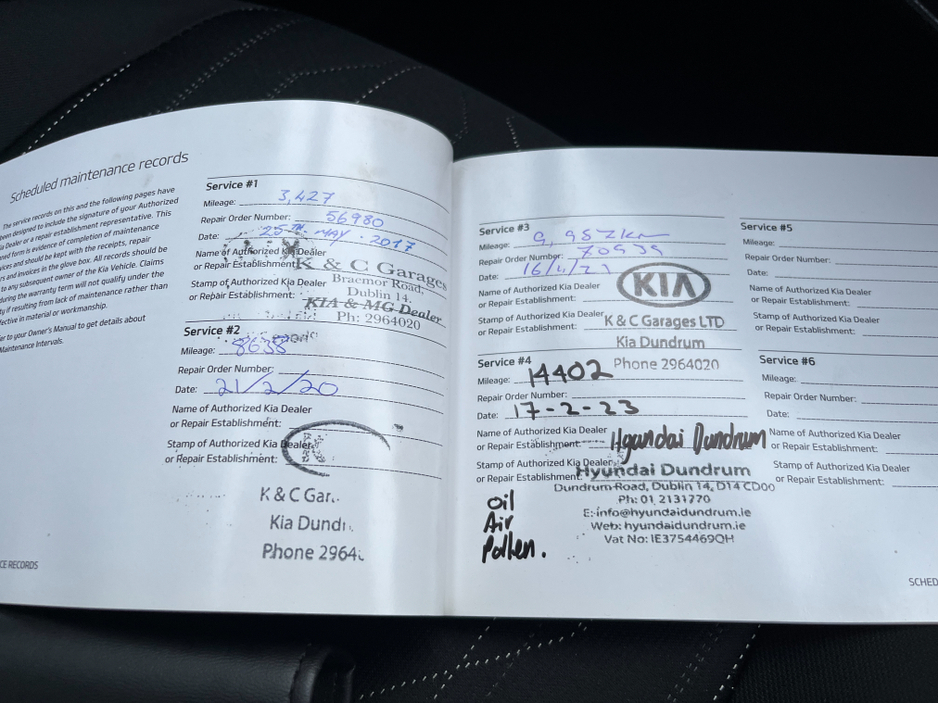 Scheduled maintenance records
The service records on this and the following pages have
been designed to include the signature of your Authorized
Kia Dealer or a repair establishment representative. This
form is evidence of completion of maintenance
and should be kept with the receipts, repair
and invoices in the glove box. All records should be
to any subsequent owner of the Kia Vehicle. Claims
during the warranty term will not qualify under the
if resulting from lack of maintenance rather than
in material or workmanship.
to your Owner's Manual to get details about
Maintenance Intervals.
Service #1
Mileage: 3,427
Repair Order Number: 56980
Date: 25TH MAY. 2017
Name of Authorized Kia Dealer
or Repair Establishment:
K & C Garages
Stamp of Authorized Kia Dealer
or Repair Establishment:
Braemor Road,
Dublin 14.
KIA & MG Dealer
Ph: 2964020
Service #2
Mileage: 8638
Repair Order Number:
Date: 21/2/20
Name of Authorized Kia Dealer
or Repair Establishment:
Stamp of Authorized Kia Dealer
or Repair Establishment:
K & C Gar
Kia Dund
Phone 2964
Service #3
Mileage: 9,957km
Repair Order Number:
Date:
Name of Authorized Kia Dealer
or Repair Establishment:
KIA
Stamp of Authorized Kia Dealer
or Repair Establishment:
K & C Garages LTD
Kia Dundrum
Phone 2964020
Service #4
Mileage: 14402
Repair Order Number:
Date: 17-2-23
Name of Authorized Kia Dealer
or Repair Establishment: Hyundai Dundrum
Stamp of Authorized Kia Dealer
or Repair Establishment:
Hyundai Dundrum
Dundrum Road, Dublin 14, D14 CD00
Ph: 01 2131770
E: info@hyundaidundrum.ie
Web: hyundaidundrum.ie
Vat No: IE3754469QH
Oil
Air
Pollen.
Service #5
Mileage:
Repair Order Number:
Date:
Name of Authorized Kia Dealer
or Repair Establishment:
Stamp of Authorized Kia Dealer
or Repair Establishment:
Service #6
Mileage:
Repair Order Number:
Date:
Name of Authorized Kia Dealer
or Repair Establishment:
Stamp of Authorized Kia Dealer
or Repair Establishment:
CE RECORDS
SCHED